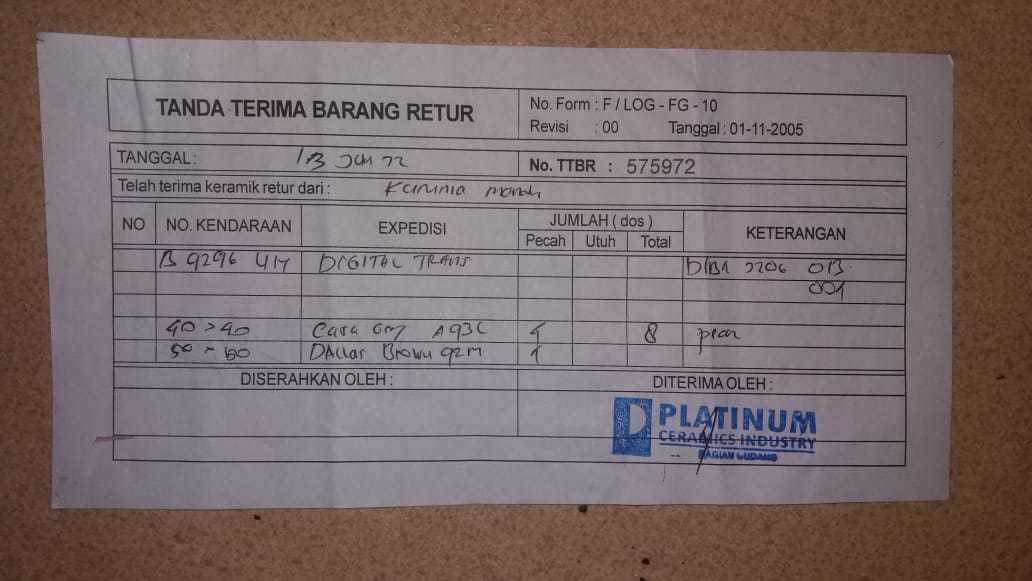 TANDA TERIMA BARANG RETUR
No. Form : F / LOG - FG - 10
Revisi : 00 Tanggal : 01-11-2005
TANGGAL : 13 Jun 22
No. TTBR : 575972
Telah terima keramik retur dari : Karunia
NO NO. KENDARAAN EXPEDISI JUMLAH ( dos ) KETERANGAN
Pecah Utuh Total
B 9296 UM DIGITAL TRANS 2206 013
001
40 > 40 Casa A93C 8
50 - 50 Dallas Brown 92M
DISERAHKAN OLEH :
DITERIMA OLEH :
PLATINUM
CERAMICS INDUSTRY
BAGIAN GUDANG